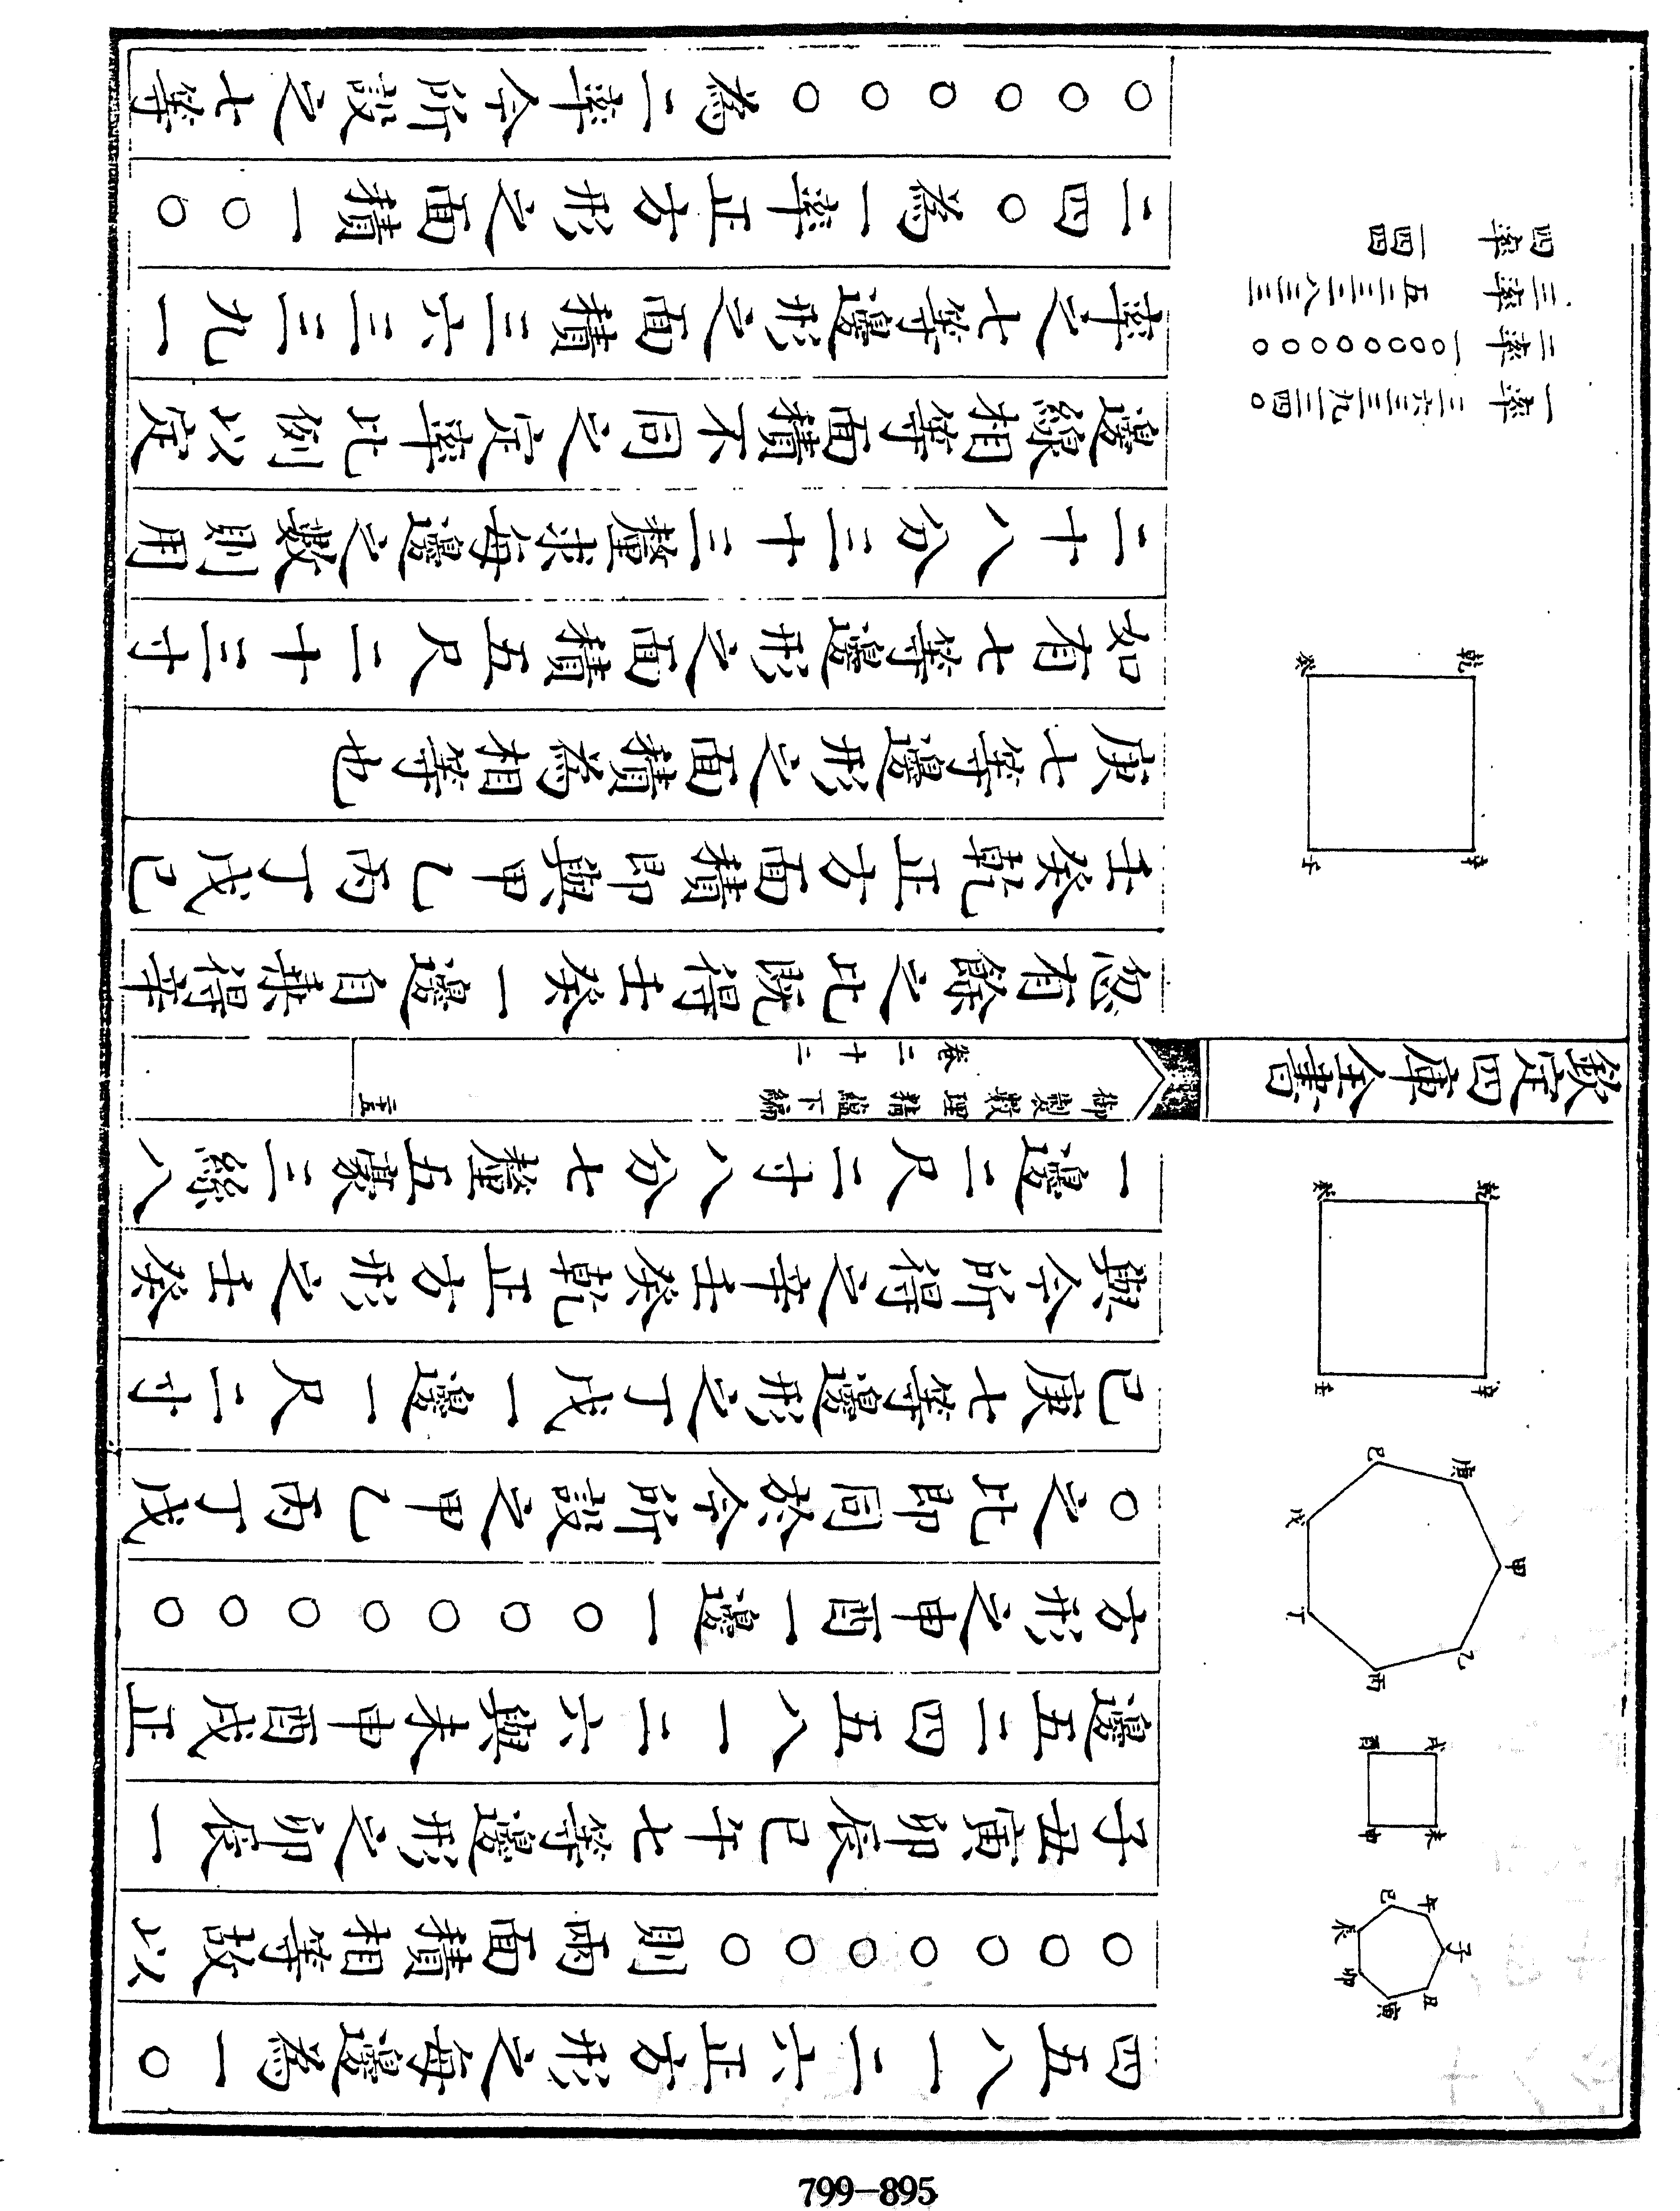 四五八一二六正方形之每邊為一○
○○○○○○○則兩面積相等故以
子丑寅卯辰巳午七等邊形之卯辰一
邊五二四五八一二六與未申酉戌正
方形之申酉一邊一○○○○○○○
○之比即同於今所設之甲乙丙丁戊
己庚七等邊形之丁戊一邊一尺二寸
與今所得之辛壬癸乾正方形之壬癸
一邊二尺二寸八分七釐五豪三絲八
子
丑
寅
卯
辰
巳
午
未
申
酉
戌
甲
乙
丙
丁
戊
己
庚
辛
壬
癸
乾
欽定四庫全書
御製數理精蘊下編
卷二十二
二十五
忽有餘之比既得壬癸一邊自乘得辛
壬癸乾正方面積即與甲乙丙丁戊己
庚七等邊形之面積為相等也
如有七等邊形之面積五尺二十三寸
二十八分三十三釐求每邊之數則用
邊線相等面積不同之定率比例以定
率之七等邊形之面積三六三三九一
二四○為一率正方形之面積一○○
○○○○○○為二率今所設之七等
辛
壬
癸
乾
一率 三六三三九一二四○
二率 一○○○○○○○○
三率 五二三二八三三
四率 一四四
799-895